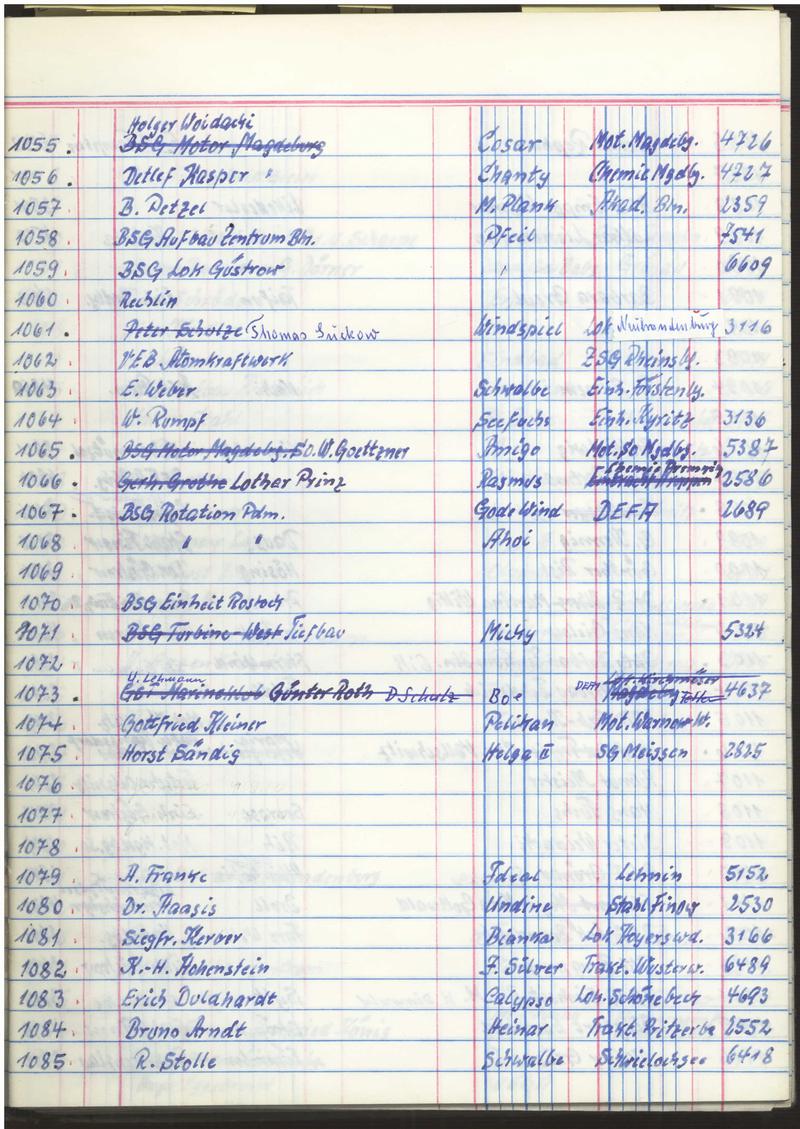 Holger Woidacki
1055. BSG Motor Magdeburg Cosar Mot. Magdebg. 4726
1056. Detlef Kasper " Chanty Chemie Mgdbg. 4727
1057 B. Detzel M. Plank Akad. Bln. 2359
1058 BSG Aufbau Zentrum Bln. Pfeil 7541
1059 BSG Lok Güstrow " 6609
1060 Rechlin
1061. Peter Schulze Thomas Suckow Windspiel Lok Neubrandenburg 3116
1062 VEB Atomkraftwerk ZSG Rheinsbg.
1063 E. Weber Schwalbe Einh. Fürstenbg.
1064 W. Rumpf Seefuchs Einh. Kyritz 3136
1065. BSG Motor Magdebg. SO. W. Goettzner Amigo Mot. SO Mgdbg. 5387
Chemie Premnitz
1066. Gerh. Grothe Lothar Prinz Rasmus 2586
1067. BSG Rotation Pdm. Gode Wind DEFA 2689
1068 " " Ahoi
1069
1070 BSG Einheit Rostock
1071 BSG Turbine-West Tiefbau Micky 5324
1072
U. Lehmann
1073. GST Marineklub Günter Roth D Schulz Boe DEFA Magdeburg 4637
1074. Gottfried Kleiner Pelikan Mot. Warnow W.
1075 Horst Sändig Helga II SG Meissen 2825
1076
1077
1078
1079 A. Franke Ideal Lehnin 5152
1080 Dr. Haasis Undine Stahl Finow 2530
1081 Siegfr. Kerver Bianka Lok Hoyerswd. 3166
1082 K.-H. Hohenstein F. Silver Trakt. Wusterw. 6489
1083 Erich Duldhardt Calypso Lok. Schönebeck 4693
1084 Bruno Arndt Heinar Trakt. Pritzerbe 2552
1085 R. Stolle Schwalbe Schwielochsee 6418